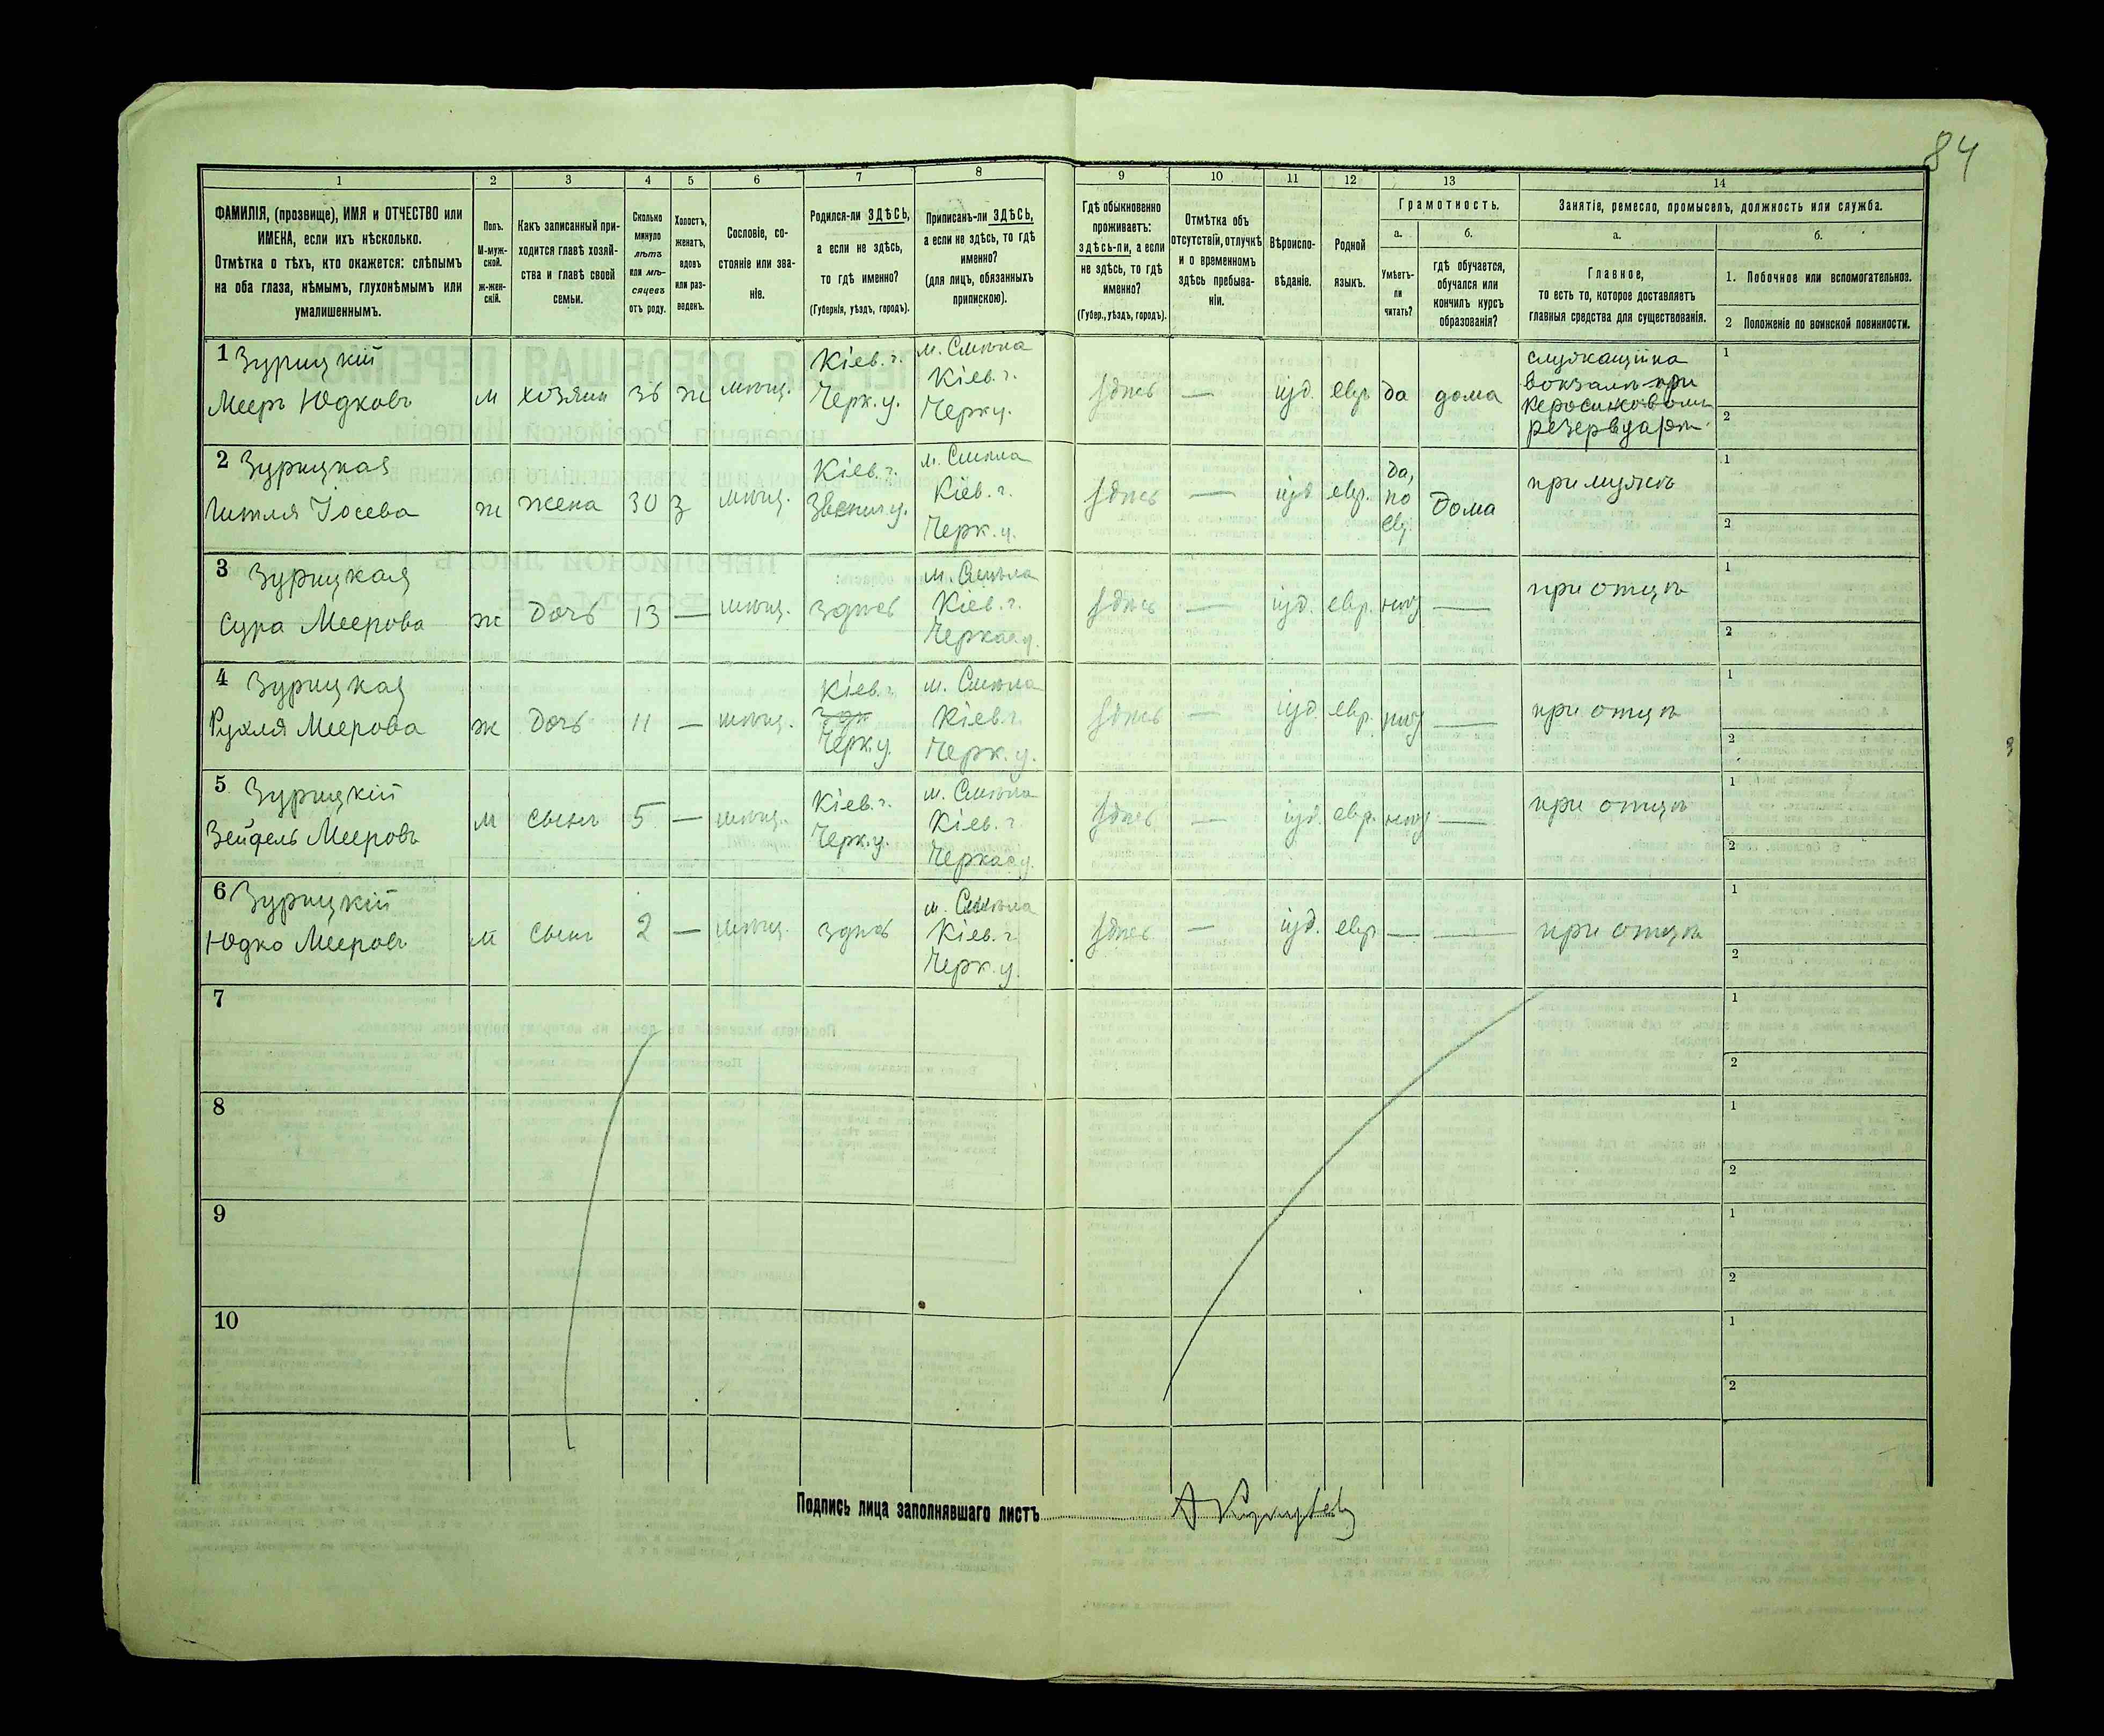 84
1 2 3 4 5 6 7 8 9 10 11 12 13 14
ФАМИЛІЯ, (прозвище), ИМЯ и ОТЧЕСТВО или
ИМЕНА, если ихъ нѣсколько.
Отмѣтка о тѣхъ, кто окажется: слѣпымъ
на оба глаза, нѣмымъ, глухонѣмымъ или
умалишеннымъ.
Полъ.
М-муж-
ской.
ж-жен-
скій.
Какъ записанный при-
ходится главѣ хозяй-
ства и главѣ своей
семьи.
Сколько
минуло
лѣтъ
или мѣ-
сяцевъ
отъ роду.
Холостъ,
женатъ,
вдовъ
или раз-
веденъ.
Сословіе, со-
стояніе или зва-
ніе.
Родился-ли ЗДѢСЬ,
а если не здѣсь,
то гдѣ именно?
(Губернія, уѣздъ, городъ).
Приписанъ-ли ЗДѢСЬ,
а если не здѣсь, то гдѣ
именно?
(для лицъ, обязанныхъ
припискою).
Гдѣ обыкновенно
проживаетъ:
здѣсь-ли, а если
не здѣсь, то гдѣ
именно?
(Губер., уѣздъ, городъ).
Отмѣтка объ
отсутствіи, отлучкѣ
и о временномъ
здѣсь пребыва-
ніи.
Вѣроиспо-
вѣданіе.
Родной
языкъ.
Грамотность.
а.
Умѣетъ-
ли
читать?
б.
гдѣ обучается,
обучался или
кончилъ курсъ
образованія?
Занятіе, ремесло, промыселъ, должность или служба.
а.
Главное,
то есть то, которое доставляетъ
главныя средства для существованія.
б.
1. Побочное или вспомогательное.
2 Положеніе по воинской повинности.
1 Зурицкій
Мееръ Юдковъ
м
хозяин
36
ж
мѣщ.
Кіев. г.
Черк. у.
м. Смѣла
Кіев. г.
Черк у.
здѣсь
—
іуд.
евр.
да
дома
служащій на
вокзалѣ при
керосиновомъ
резервуарѣ
1
2
2 Зурицкая
Іосева
ж
жена
30
з
мѣщ.
Кіев. г.
Звениг у.
м. Смѣла
Кіев. г.
Черк. у.
здѣсь
—
іуд
евр.
да,
по
евр.
Дома
при мужѣ
1
2
3 Зурицкая
Сура Меерова
ж
Дочь
13
—
мѣщ.
здѣсь
м. Смѣла
Кіев. г.
Черкас у.
здѣсь
—
іуд.
евр.
нѣт
—
при отцѣ
1
2
4 Зурицкая
Рухля Меерова
ж
Дочь
11
—
мѣщ.
Кіев. г.
Черк у.
м. Смѣла
Кіев. г.
Черк. у.
здѣсь
—
іуд.
евр.
нѣт
—
при отцѣ
1
2
5 Зурицкій
Зейфель Мееровъ
м
сынъ
5
—
мѣщ.
Кіев. г.
Черк. у.
м. Смѣла
Кіев. г.
Черкас у.
здѣсь
—
іуд.
евр.
нѣт
—
при отцѣ
1
2
6 Зурицкій
Юдко Мееровъ
м
сынъ
2
—
мѣщ.
здѣсь
м. Смѣла
Кіев. г.
Черк. у.
здѣсь
—
іуд.
евр
—
—
при отцѣ
1
2
7
1
2
8
1
2
9
1
2
10
1
2
Подпись лица заполнявшаго листъ